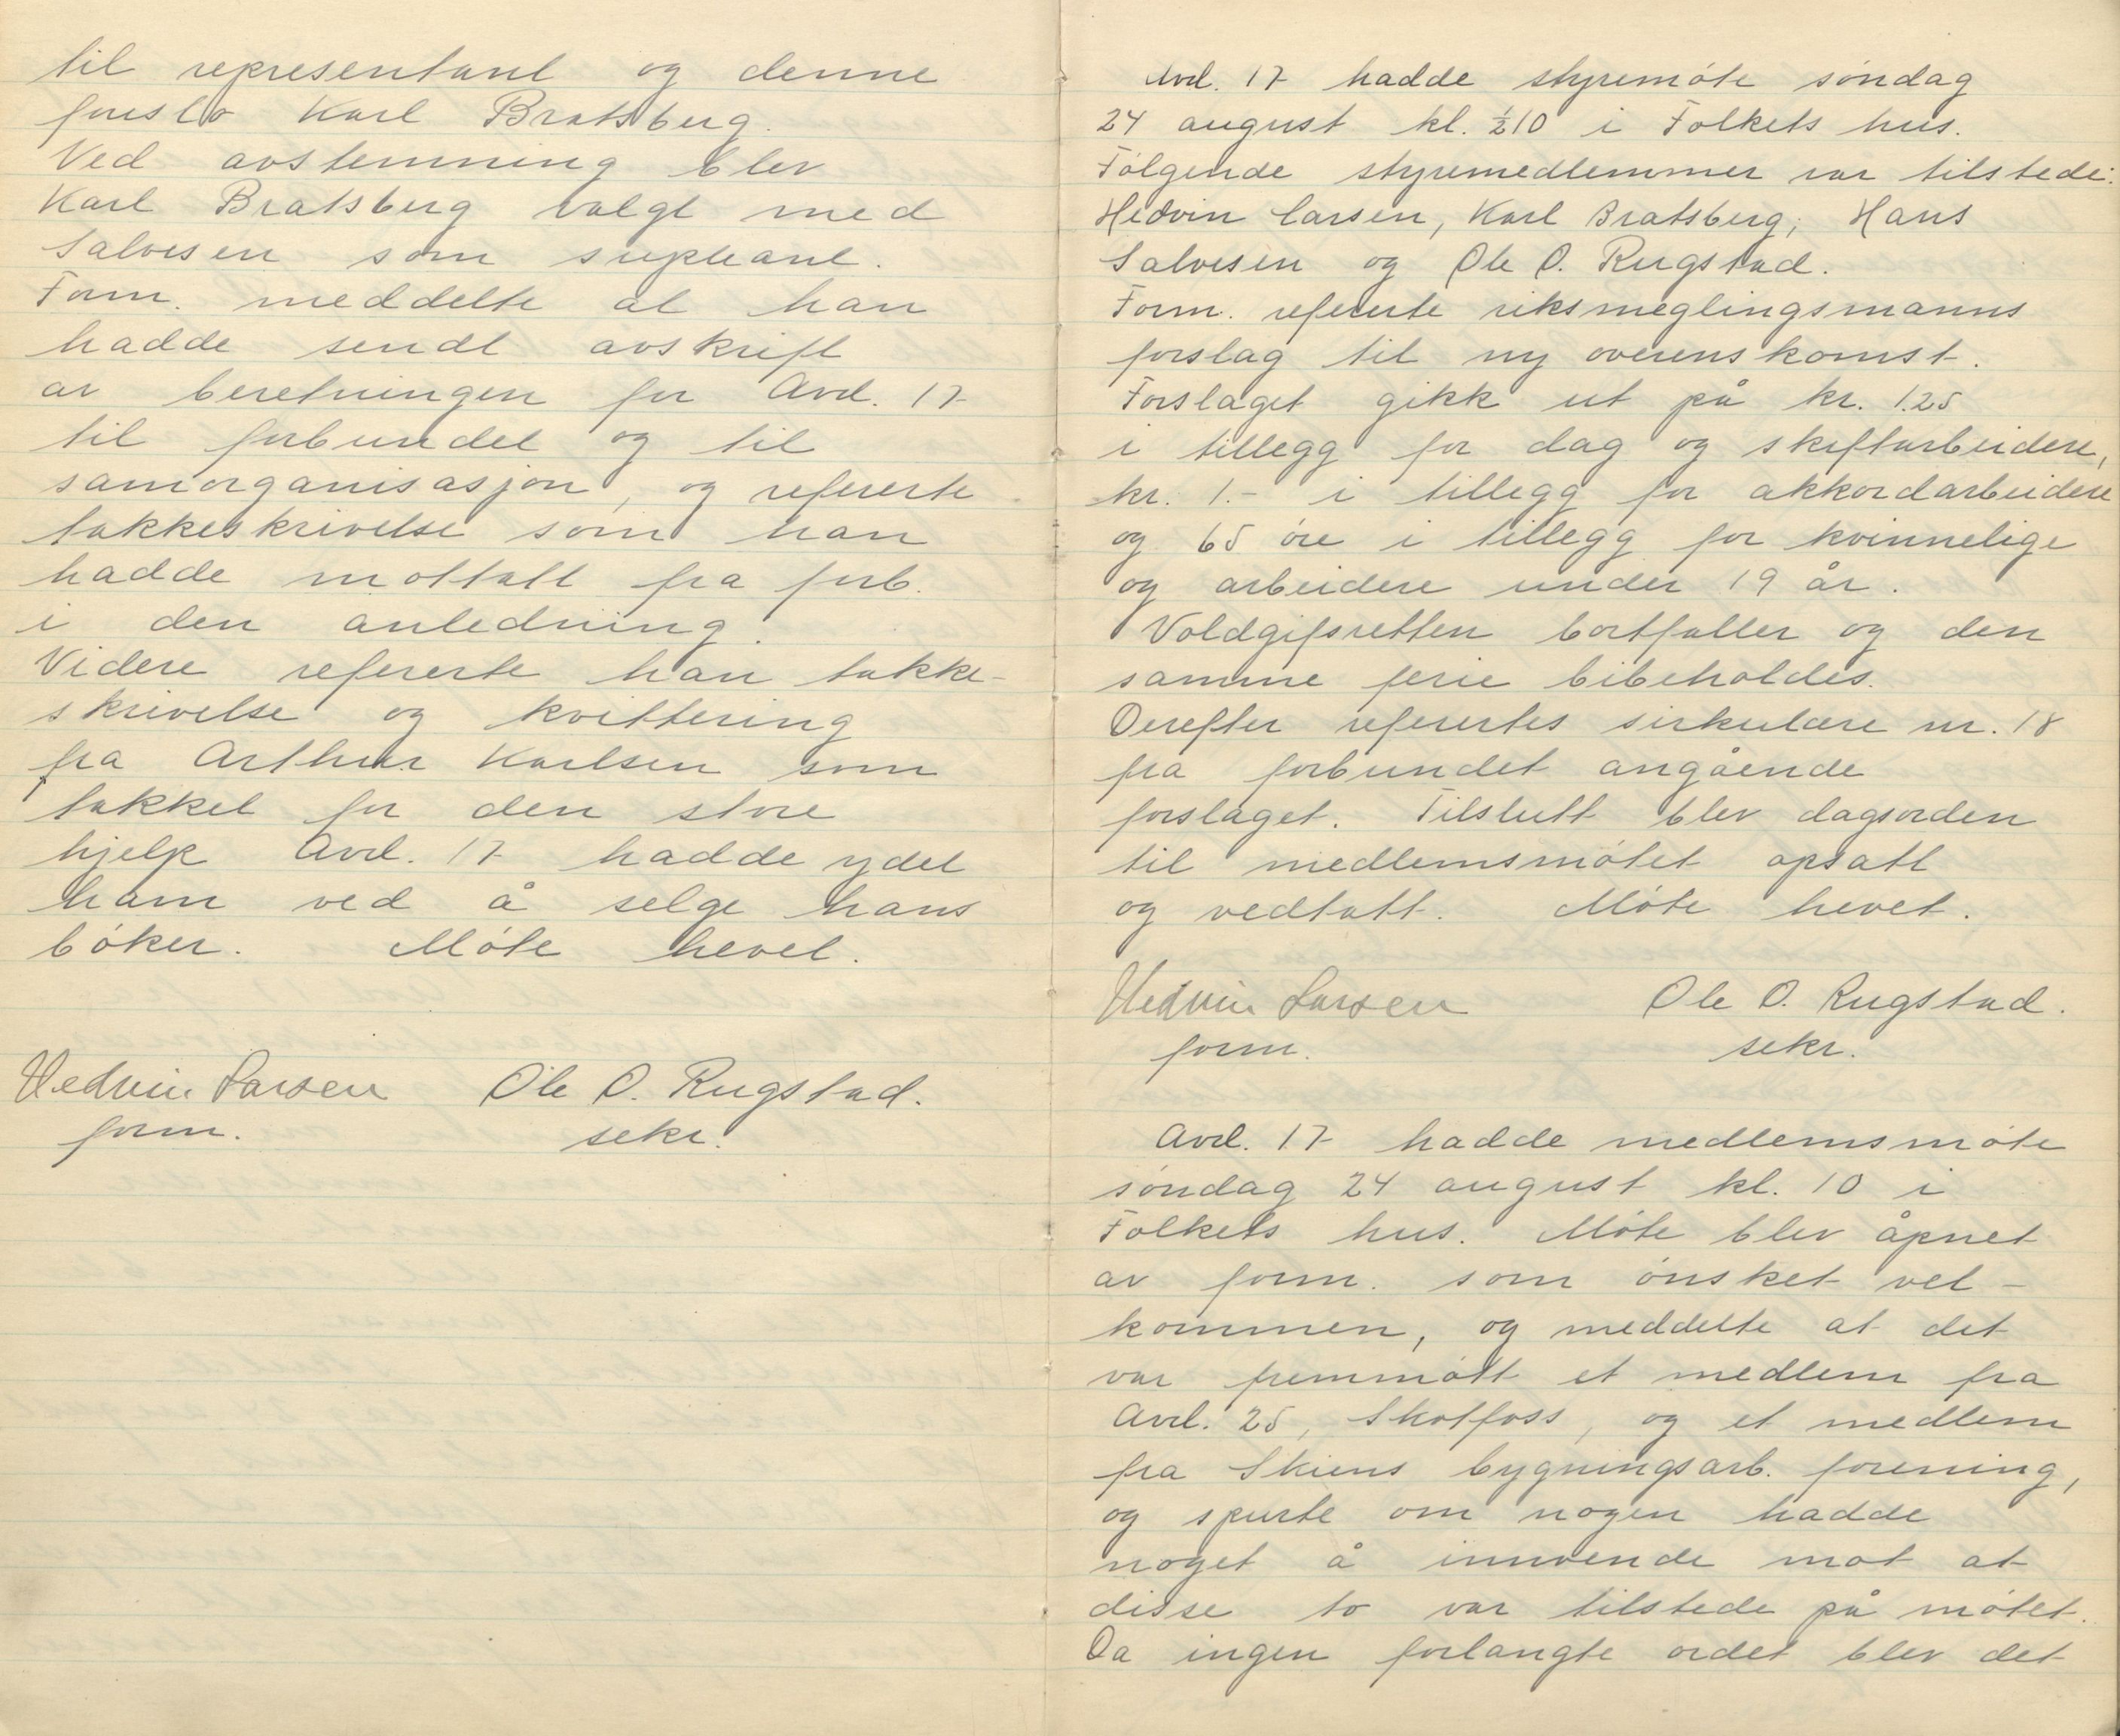 til representant og denne
foreslo Karl Bratsberg.
Ved avstemning blev
Karl Bratsberg valgt med
Salvesen som supleant.
Form. meddelte at han
hadde sendt avskrift
av beretningen for Avd. 17
til forbundet og til
samorganisasjon, og refererte
takkeskrivelse som han
hadde mottatt fra forb.
i den anledning.
Videre refererte han takke-
skrivelse og kvittering
fra Arthur Karlsen som
takket for den store
hjelp Avd. 17 hadde ydet
ham ved å selge hans
bøker. Møte hevet.
Hedvin Larsen Ole O. Rugstad.
form. sekr.
Avd. 17 hadde styremøte søndag
24 august kl. ½10 i Folkets hus.
Følgende styremedlemmer var tilstede:
Hedvin Larsen, Karl Bratsberg, Hans
Salvesen og Ole O. Rugstad.
Form. refererte riksmeglingsmanns
forslag til ny overenskomst.
Forslaget gikk ut på kr. 1.25
i tillegg for dag og skiftarbeidere,
kr. 1.- i tillegg for akkordarbeidere
og 65 øre i tillegg for kvinnelige
og arbeidere under 19 år.
Voldgifsretten bortfaller og den
samme ferie bibeholdes.
Derefter refertes sirkulære nr. 18
fra forbundet angående
forslaget. Tilslutt blev dagsorden
til medlemsmøtet opsatt
og vedtatt. Møte hevet.
Hedvin Larsen Ole O. Rugstad.
form. sekr.
Avd. 17 hadde medlemsmøte
søndag 24 august kl. 10 i
Folkets hus. Møte blev åpnet
av form. som ønsket vel-
kommen, og meddelte at det
var fremmøtt et medlem fra
Avd. 25, Skotfoss, og et medlem
fra Skiens bygningsarb. forening,
og spurte om nogen hadde
noget å innvende mot at
disse to var tilstede på møtet.
Da ingen forlangte ordet blev det